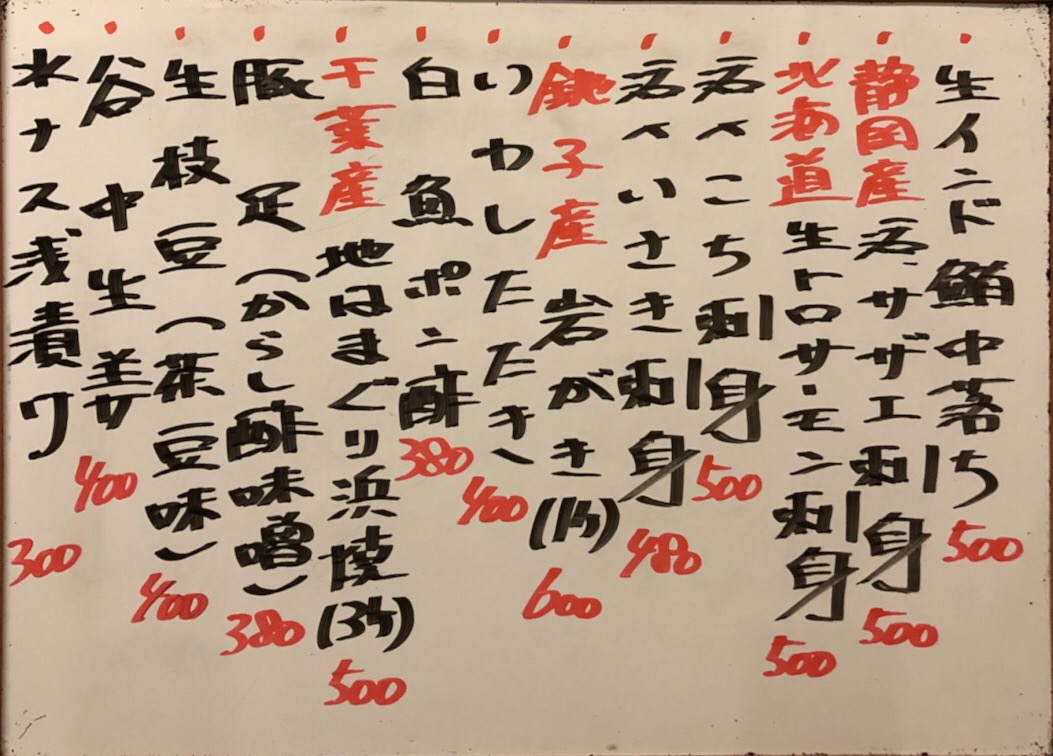 生インド鮪中落ち 500
静岡産 サザエ刺身 500
北海道 生トロサーモン刺身 500
こち刺身 500
いさき刺身 480
銚子産 岩がき(1ケ) 600
いわしたたき 400
白魚ポン酢 380
千葉産 地はまぐり浜焼(3ケ) 500
豚足(からし酢味噌) 380
生枝豆(茶豆味) 400
谷中生姜 400
水ナス浅漬け 300